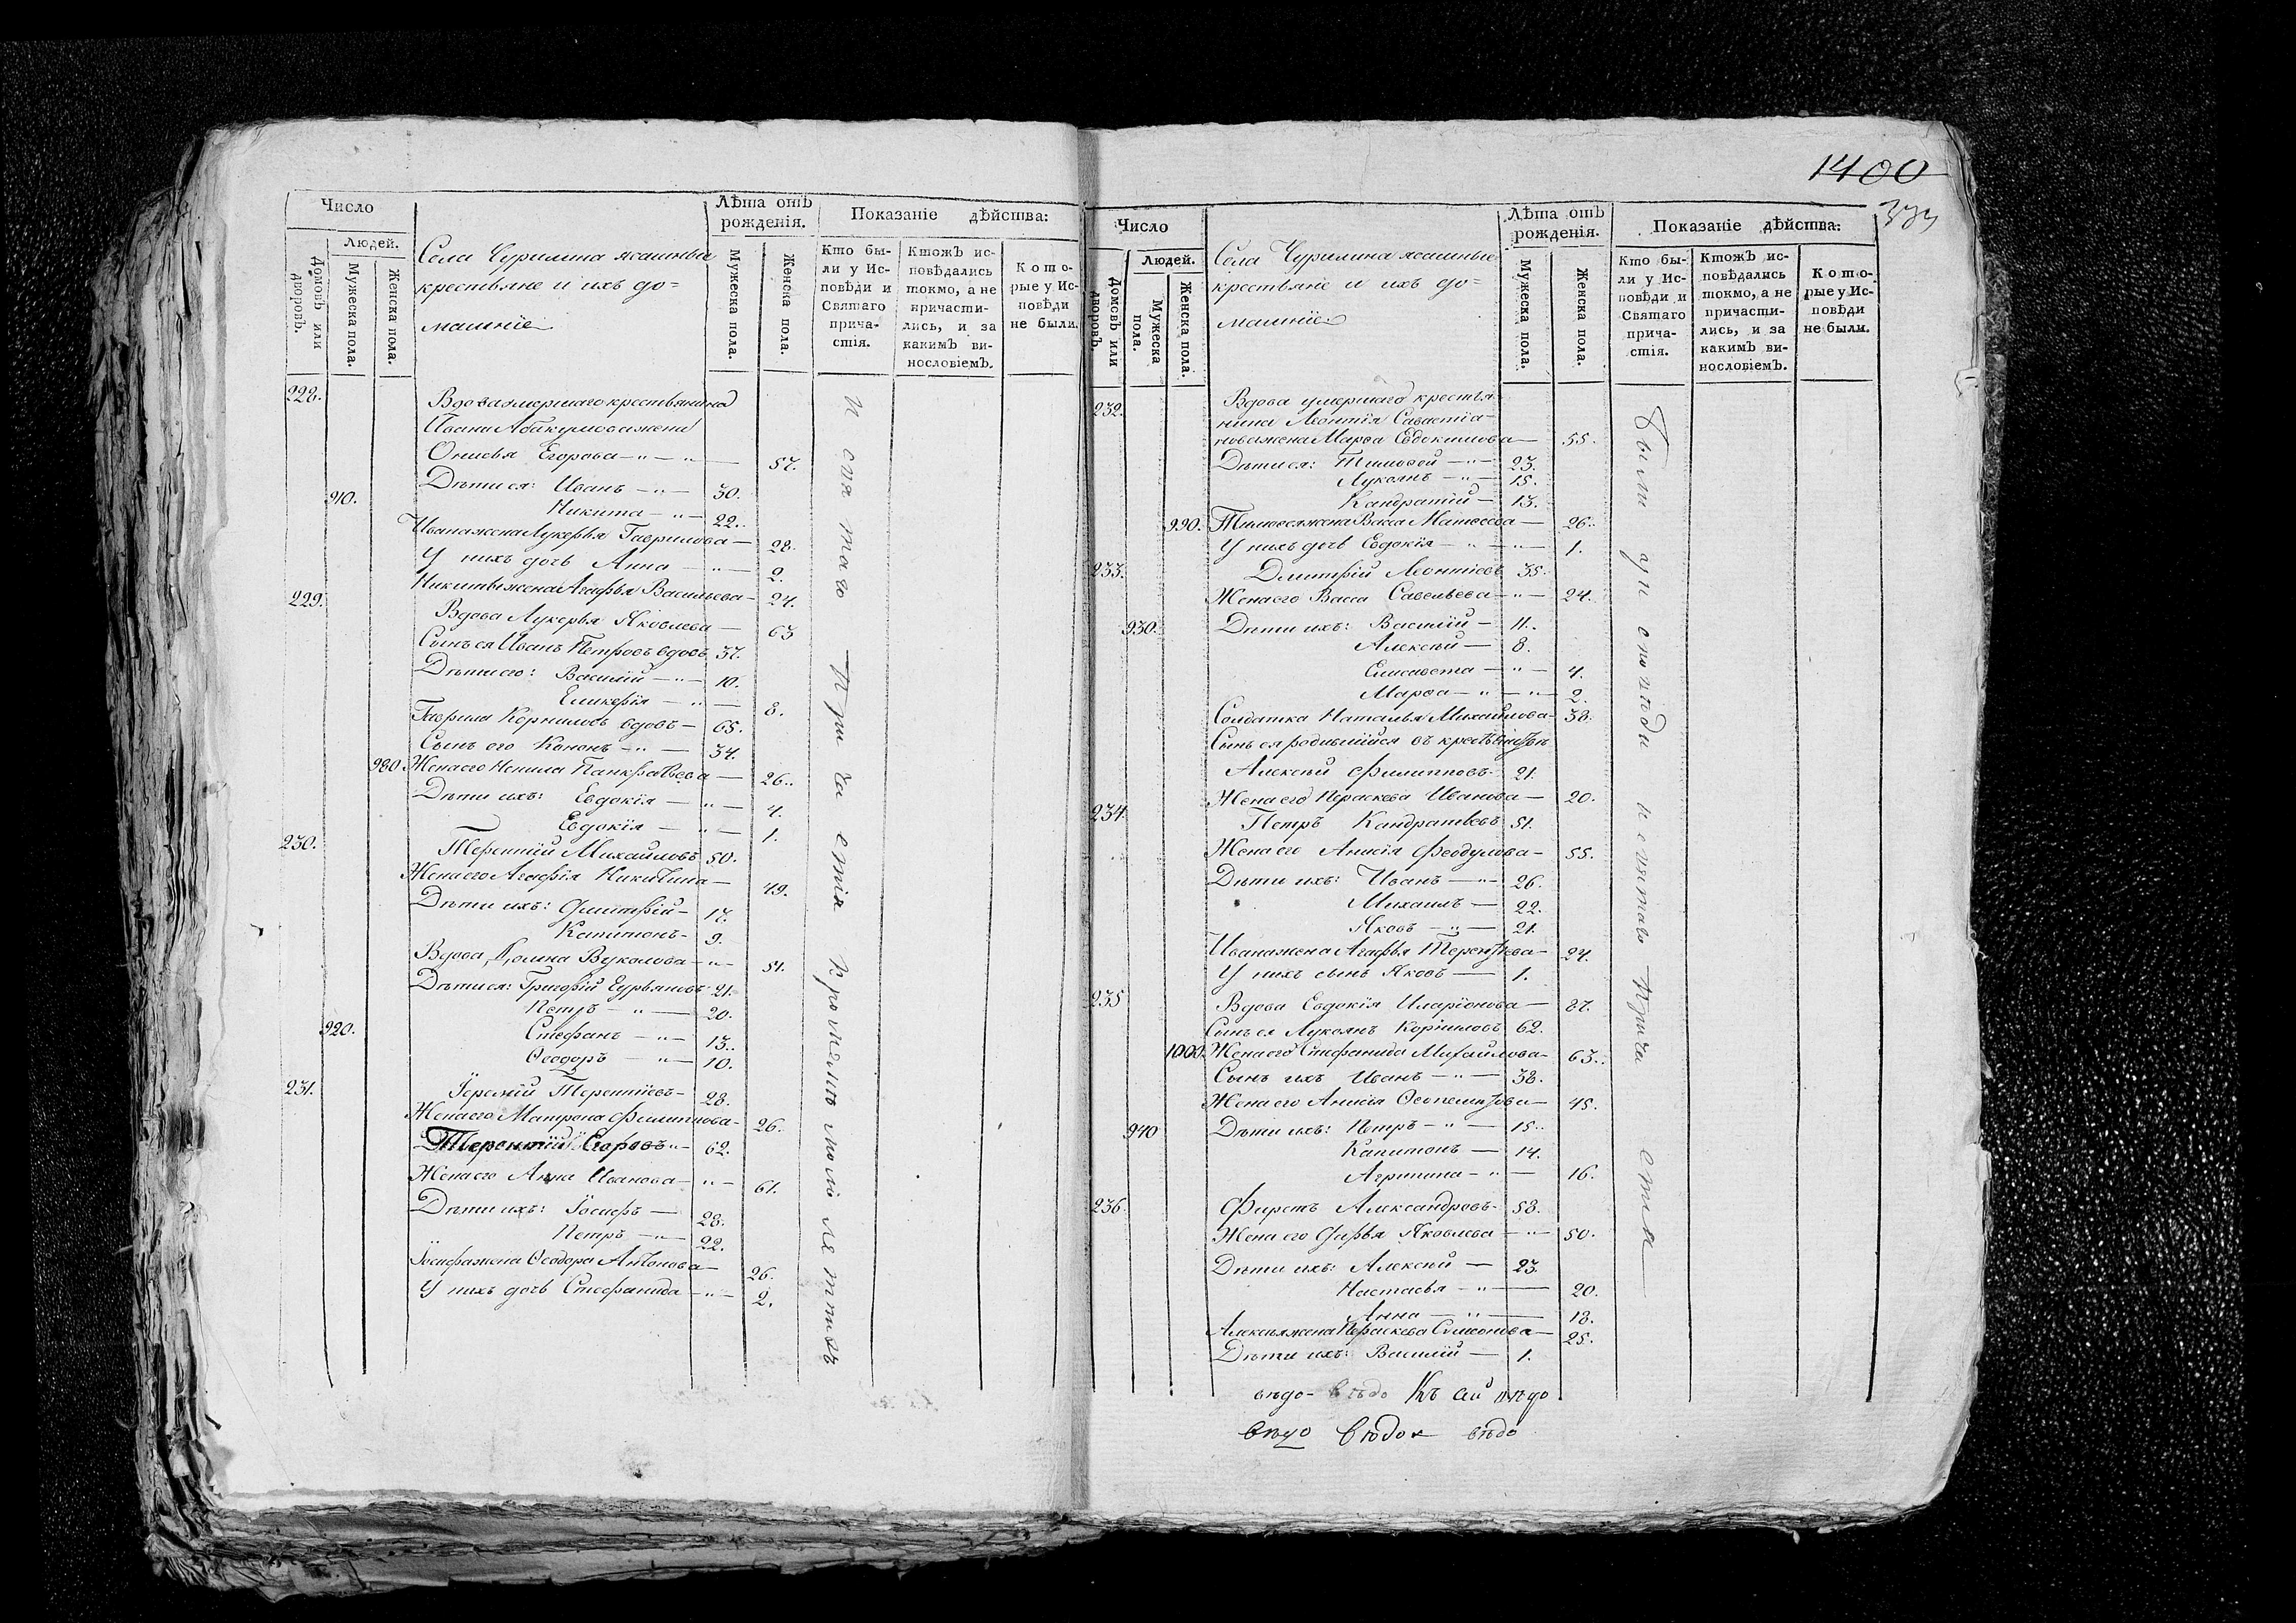 Число
Людей.
Домовъ или дворовъ.
Мужеска пола.
Женска пола.
Села Чурилина ясашные
крестьяне и ихъ до=
машніе
Лѣта отъ
рожденія.
Мужеска пола.
Женска пола.
Показаніе дѣйства:
Кто бы-
ли у Ис-
повѣди и
Святаго
прича-
стія.
Ктожъ ис-
повѣдались
токмо, а не
причасти-
лись, и за
какимъ ви-
нословіемъ.
Кото-
рые у Ис-
повѣди
не были.
228. Вдова умершаго крестьянина
Ивана Абакумова жена
Онисья Егорова 57.
Дѣти ея: Иванъ 30.
910. Никита 22.
Ивана жена Лукерья Гаврилова 28.
У нихъ дочь Анна 2.
Никиты жена Агафья Васильева 24.
229. Вдова Лукерья Яковлева 63
Сынъ ея Иванъ Петровъ вдовъ 37.
Дѣти его: Василий 10.
Гликерія 8.
Гаврила Корниловъ вдовъ 65.
Сынъ его Кононъ 34.
980. Жена его Ненила Панкратьева 26.
Дѣти ихъ: Евдокія 4.
Евдокія 1.
230. Терентий Михайловъ 50.
Жена его Агафія Никитина 49.
Дѣти ихъ: Дмитрій 17.
Капитонъ 9.
Вдова Домна Вуколова 51.
Дѣти ея: Григорій Гурьяновъ 21.
Петръ 20.
920. Стефанъ 13.
Ѳеодоръ 10.
231. Іеремій Терентіевъ 28.
Жена его Матрона Филиппова 26.
Терентій Егоровъ 62.
Жена его Анна Иванова 61.
Дѣти ихъ: Іосифъ 28.
Петръ 22.
Іосифа жена Ѳеодора Антонова 26.
У нихъ дочь Стефанида 2.
и святаго прича стія
1400
Число
Людей.
Домовъ или дворовъ.
Мужеска пола.
Женска пола.
Села Чурилина ясашные
крестьяне и ихъ до=
машніе
Лѣта отъ
рожденія.
Мужеска пола.
Женска пола.
Показаніе дѣйства:
Кто бы-
ли у Ис-
повѣди и
Святаго
прича-
стія.
Ктожъ ис-
повѣдались
токмо, а не
причасти-
лись, и за
какимъ ви-
нословіемъ.
Кото-
рые у Ис-
повѣди
не были.
232. Вдова умершаго крестья
нина Леонтія Савастіа-
нова жена Марѳа Евдокимова 55.
Дѣти ея: Тимоѳей 23.
Лукоянъ 15.
Кандратій 13.
990. Тимоѳея жена Васса Матвеева 26.
У нихъ дочь Евдокія 1.
233. Дмитрій Леонтіевъ 35.
Жена его Васса Савельева 24.
930. Дѣти ихъ: Василій 11.
Алексѣй 8.
Елисавета 4.
Марѳа 2.
Солдатка Наталья Михайлова 38.
Сынъ ея родившійся въ крестьянствѣ
Алексѣй Филипповъ 21.
Жена его Параскева Иванова 20.
234. Петръ Кандратьевъ 51.
Жена его Анисія Ѳеодулова 55.
Дѣти ихъ: Иванъ 26.
Михаилъ 22.
Яковъ 21.
Ивана жена Агафья Терентьева 24.
У нихъ сынъ Яковъ 1.
235 Вдова Евдокія Иларіонова 87.
Сынъ ея Лукоянъ Корниловъ 62.
1000. Жена его Стефанида Михайлова 63.
Сынъ ихъ Иванъ 38.
Жена его Анисія Ѳеопемптова 45.
940 Дѣти ихъ: Петръ 15.
Капитонъ 14.
Агрипина 16.
236. Фирстъ Александровъ 58.
Жена его Дарья Яковлева 50.
Дѣти ихъ: Алексѣй 23.
Настасья 20.
Анна 18.
Алексѣя жена Параскева Симонова 25.
Дѣти ихъ: Василій 1.
были у исповѣди и святаго прича стія
вѣдо- вѣдо Къ сей вѣдо
вѣдо вѣдо вѣдо